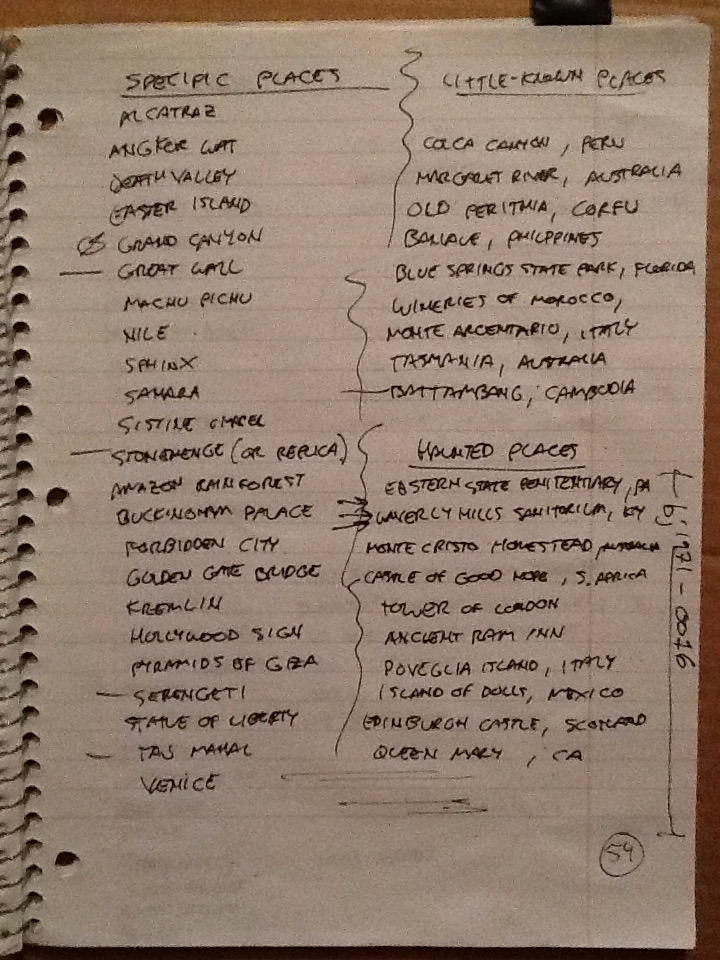 SPECIFIC PLACES
ALCATRAZ
ANGKOR WAT
DEATH VALLEY
EASTER ISLAND
GRAND CANYON
GREAT WALL
MACHU PICHU
NILE
SPHINX
SAHARA
SISTINE CHAPEL
STONEHENGE (OR REPLICA)
AMAZON RAINFOREST
BUCKINGHAM PALACE
FORBIDDEN CITY
GOLDEN GATE BRIDGE
KREMLIN
HOLLYWOOD SIGN
PYRAMIDS OF GIZA
SERENGETI
STATUE OF LIBERTY
TAJ MAHAL
VENICE
LITTLE-KNOWN PLACES
COLCA CANYON, PERU
MARGARET RIVER, AUSTRALIA
OLD PERITHIA, CORFU
BANAUE, PHILIPPINES
BLUE SPRINGS STATE PARK, FLORIDA
WINERIES OF MOROCCO,
MONTE ARGENTARIO, ITALY
TASMANIA, AUSTRALIA
BATTAMBANG, CAMBODIA
HAUNTED PLACES
EASTERN STATE PENITENTIARY, PA
WAVERLY HILLS SANITORIUM, KY
MONTE CRISTO HOMESTEAD, AUSTRALIA
CASTLE OF GOOD HOPE, S. AFRICA
TOWER OF LONDON
ANCIENT RAM INN
POVEGLIA ISLAND, ITALY
ISLAND OF DOLLS, MEXICO
EDINBURGH CASTLE, SCOTLAND
QUEEN MARY, CA
54